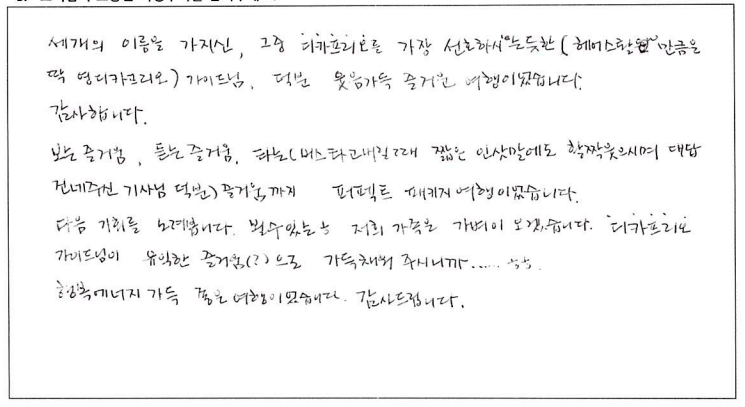 세개의 이름을 가지신, 그중 디카프리오를 가장 선호하시는듯한 (헤어스타일 만큼은
딱 영디카프리오) 가이드님, 덕분 웃음가득 즐거운 여행이였습니다.
감사합니다.
보는 즐거움, 듣는 즐거움, 타는(버스타고내릴때 짧은 인삿말에도 활짝웃으시며 대답
건네주신 기사님 덕분) 즐거움까지 퍼펙트 패키지여행이였습니다.
다음 기회를 노려봅니다. 저희 가족은 가벼이 오겠습니다. 디카프리오
가이드님이 유익한 즐거움(?)으로 가득채워 주시니까......
행복에너지 가득 품은 여행이였습니다. 감사드립니다.